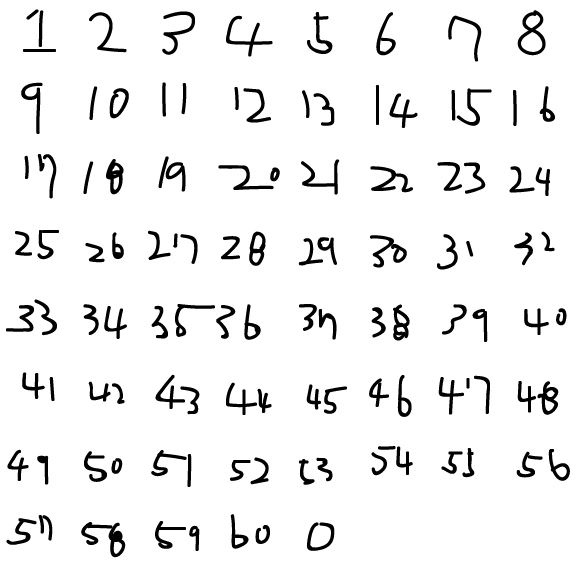 1 2 3 4 5 6 7 8
9 10 11 12 13 14 15 16
17 18 19 20 21 22 23 24
25 26 27 28 29 30 31 32
33 34 35 36 37 38 39 40
41 42 43 44 45 46 47 48
49 50 51 52 53 54 55 56
57 58 59 60 0